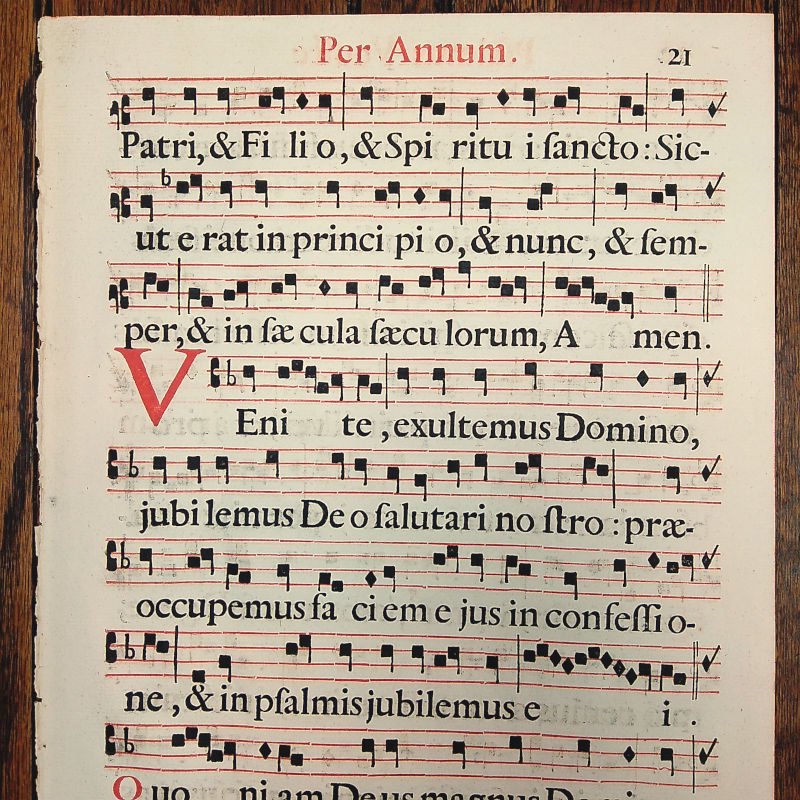 Per Annum. 21
Patri, & Fi li o, & Spi ritu i ſancto: Sic-
ut e rat in princi pi o, & nunc, & ſem-
per, & in ſæ cula ſæcu lorum, A men.
V Eni te, exultemus Domino,
jubi lemus De o ſalutari no ſtro: præ-
occupemus fa ci em e jus in con feſſi o-
ne, & in pſalmis jubilemus e i.
Quo ni am Deus magnus Domi